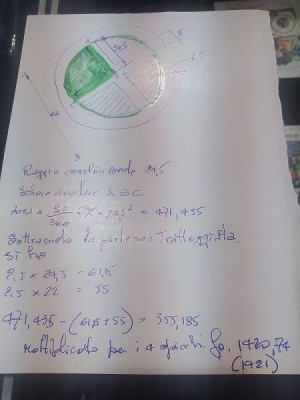 24,5
2,5
Raggio cerchio verde 24,5
Settore circolare ABC
Area = 90/360 · π · 24,5² = 471,435
Sottraendo la parte non tratteggiata
si ha
2,5 x 24,5 = 61,25
2,5 x 22 = 55
471,435 - (61,25 + 55) = 355,185
Moltiplicato per i 4 spicchi fa 1420,74
(1421)